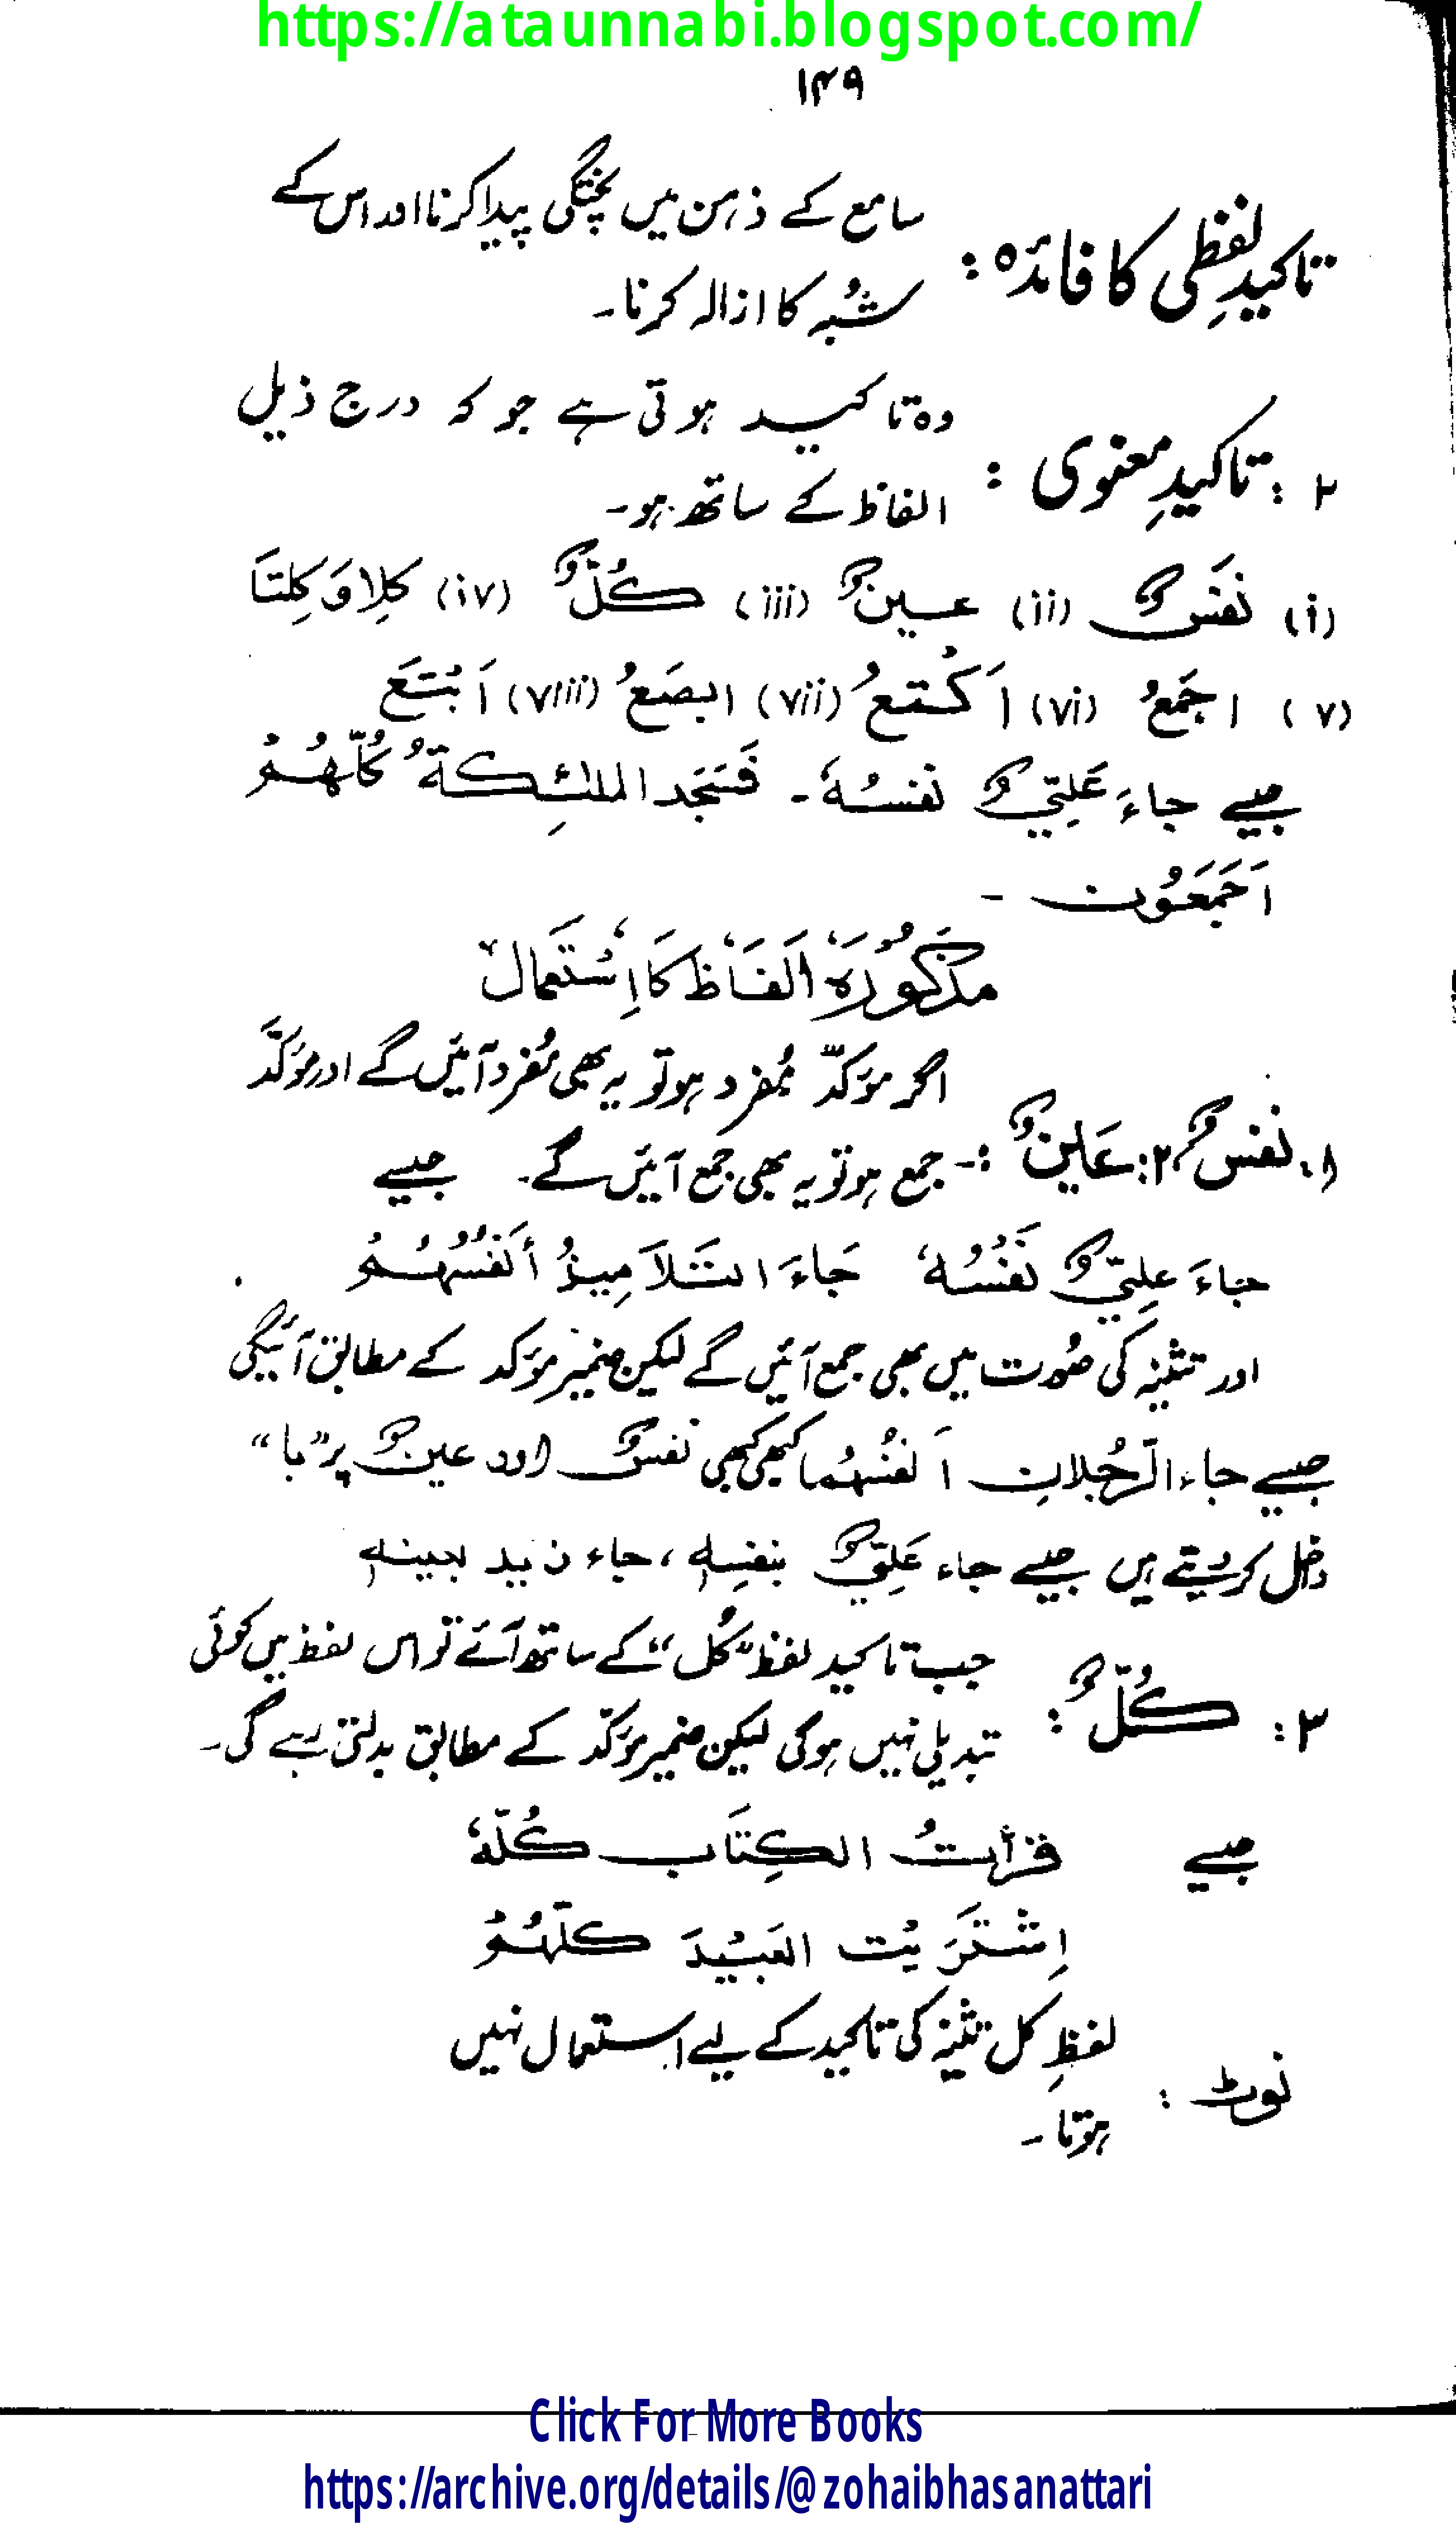 https://ataunnabi.blogspot.com/
۱۴۹
تاکیدِ لفظی کا فائدہ : سامع کے ذہن میں پختگی پیدا کرنا اور اس کے
شُبہ کا ازالہ کرنا۔
۲ : تاکیدِ معنوی : وہ تاکید ہوتی ہے جو کہ درج ذیل
الفاظ کے ساتھ ہو۔
(i) نَفسٌ (ii) عینٌ (iii) کُلٌّ (iv) کِلا وَ کِلتَا
(v) اجمَعُ (vi) اَکْتعُ (vii) ابصَعُ (viii) اَبْتَعَ
جیسے جاءَ عَلِیٌّ نفسُہٗ ۔ فَسَجَد الملئِکةُ کُلُّہُمْ
اَجمَعُون ۔
مذکورہ الفاظ کا استعمال
۱. نفسٌ ۲: عَینٌ :- اگر مؤکدّ مُفرد ہو تو یہ بھی مُفرد آئیں گے اور مؤکَّد
جمع ہو تو یہ بھی جمع آئیں گے۔ جیسے
جاءَ علِیٌّ نَفْسُہٗ جَاءَ التَلاَمِیذُ أنفُسُہُمْ
اور تثنیہ کی صُورت میں بھی جمع آئیں گے لیکن ضمیر مؤکد کے مطابق آئیگی
جیسے جاء الرَّجُلانِ اَنفُسُہُما کبھی کبھی نفسٌ اور عینٌ پر ”با“
داخل کر دیتے ہیں جیسے جاء عَلِیٌّ بنفسِہٖ ، جاء زید بعینہٖ
۳ : کُلٌّ : جب تاکید لفظ ”کُل“ کے ساتھ آئے تو اس لفظ میں کوئی
تبدیلی نہیں ہوگی لیکن ضمیر مؤکّد کے مطابق بدلتی رہے گی۔
جیسے قرأتُ الکِتَاب کُلّہٗ
اِشْتَرَیْت العَبِیْدَ کلَّہُمْ
نوٹ : لفظِ کل تثنیہ کی تاکید کے لیے استعمال نہیں
ہوتا ۔
Click For More Books
https://archive.org/details/@zohaibhasanattari